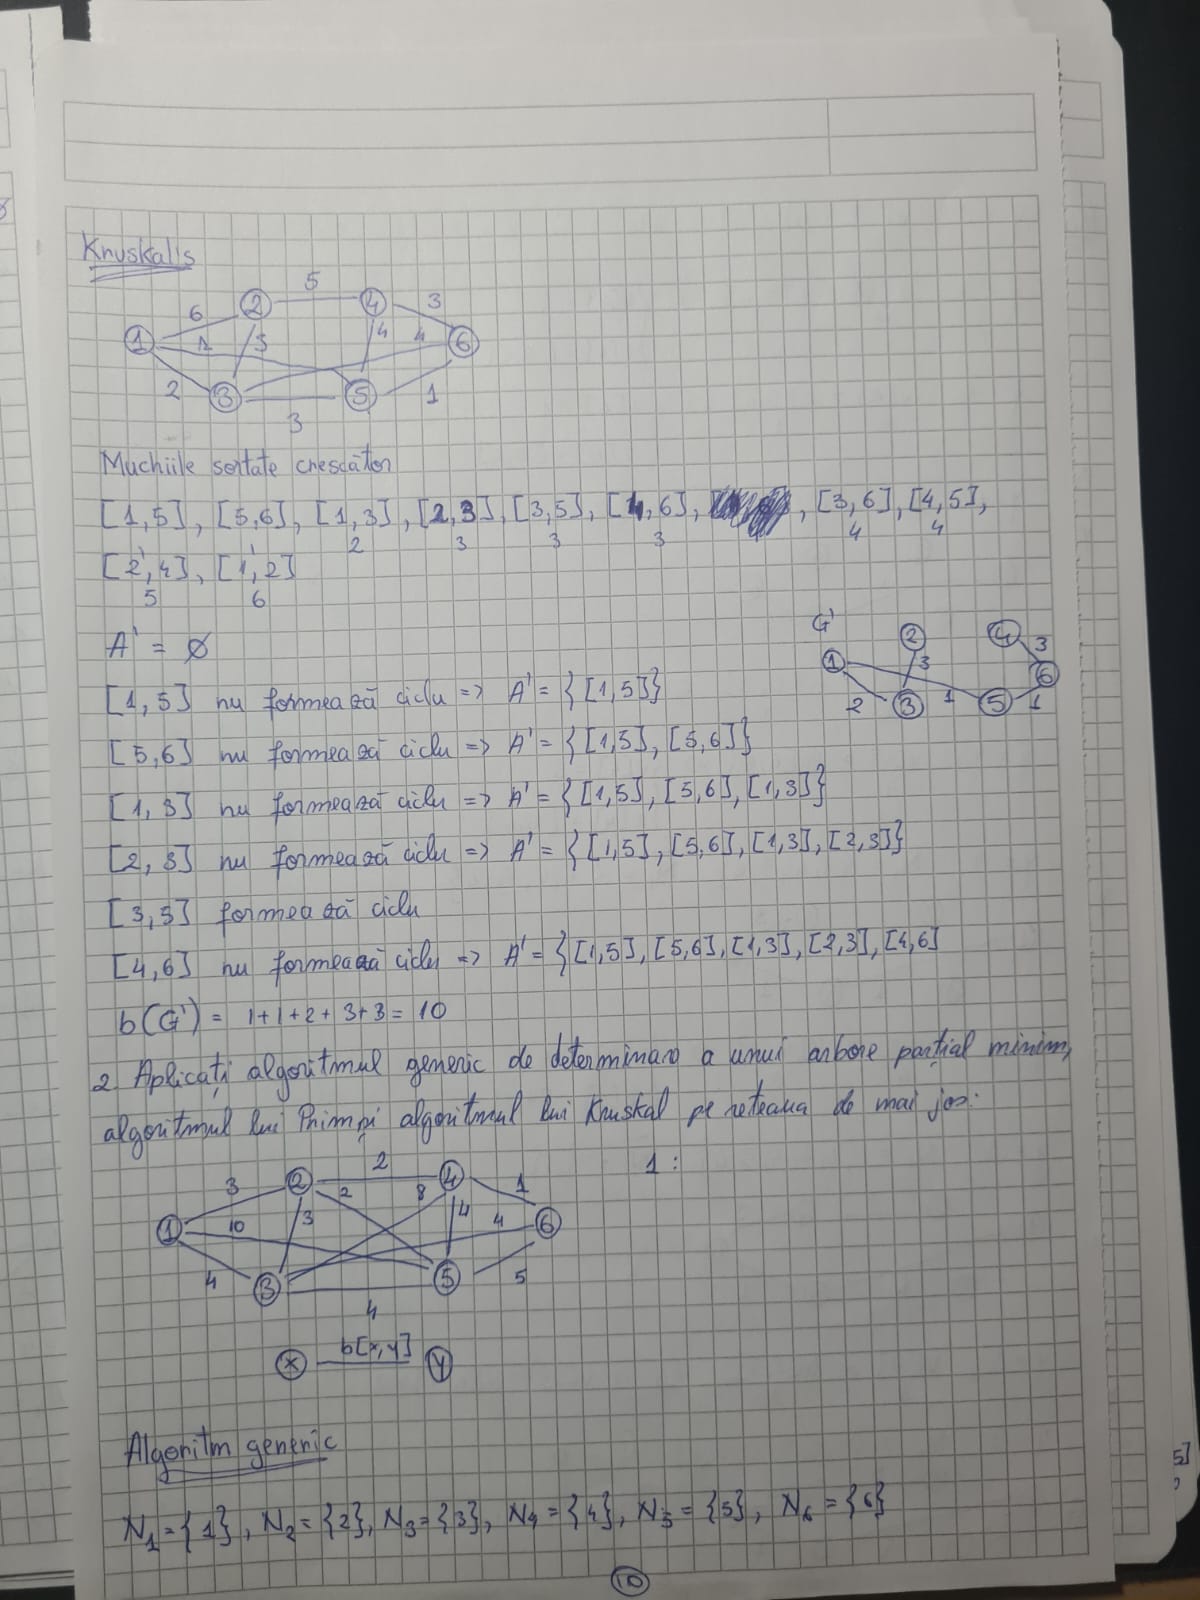 Kruskal's
5
6 2 4 3
1 1 3 4 4 6
2 3 5 1
3
Muchiile sortate crescător
[1,5], [5,6], [1,3], [2,3], [3,5], [4,6], , [3,6], [4,5],
1 1 2 3 3 3 4 4
[2,4], [1,2]
5 6
A' = ∅
G'
1 2 4 6
3 3
2 3 1 5 1
[1,5] nu formează ciclu => A' = {[1,5]}
[5,6] nu formează ciclu => A' = {[1,5], [5,6]}
[1,3] nu formează ciclu => A' = {[1,5], [5,6], [1,3]}
[2,3] nu formează ciclu => A' = {[1,5], [5,6], [1,3], [2,3]}
[3,5] formează ciclu
[4,6] nu formează ciclu => A' = {[1,5], [5,6], [1,3], [2,3], [4,6]
b(G') = 1+1+2+3+3 = 10
2. Aplicați algoritmul generic de determinare a unui arbore parțial minim,
algoritmul lui Prim și algoritmul lui Kruskal pe rețeaua de mai jos:
1:
2
3 2 2 8 4 1
1 10 3 4 4 6
4 3 5 5
4
x b[x,y] y
Algoritm generic
N1={1}, N2={2}, N3={3}, N4={4}, N5={5}, N6={6}
10
5]